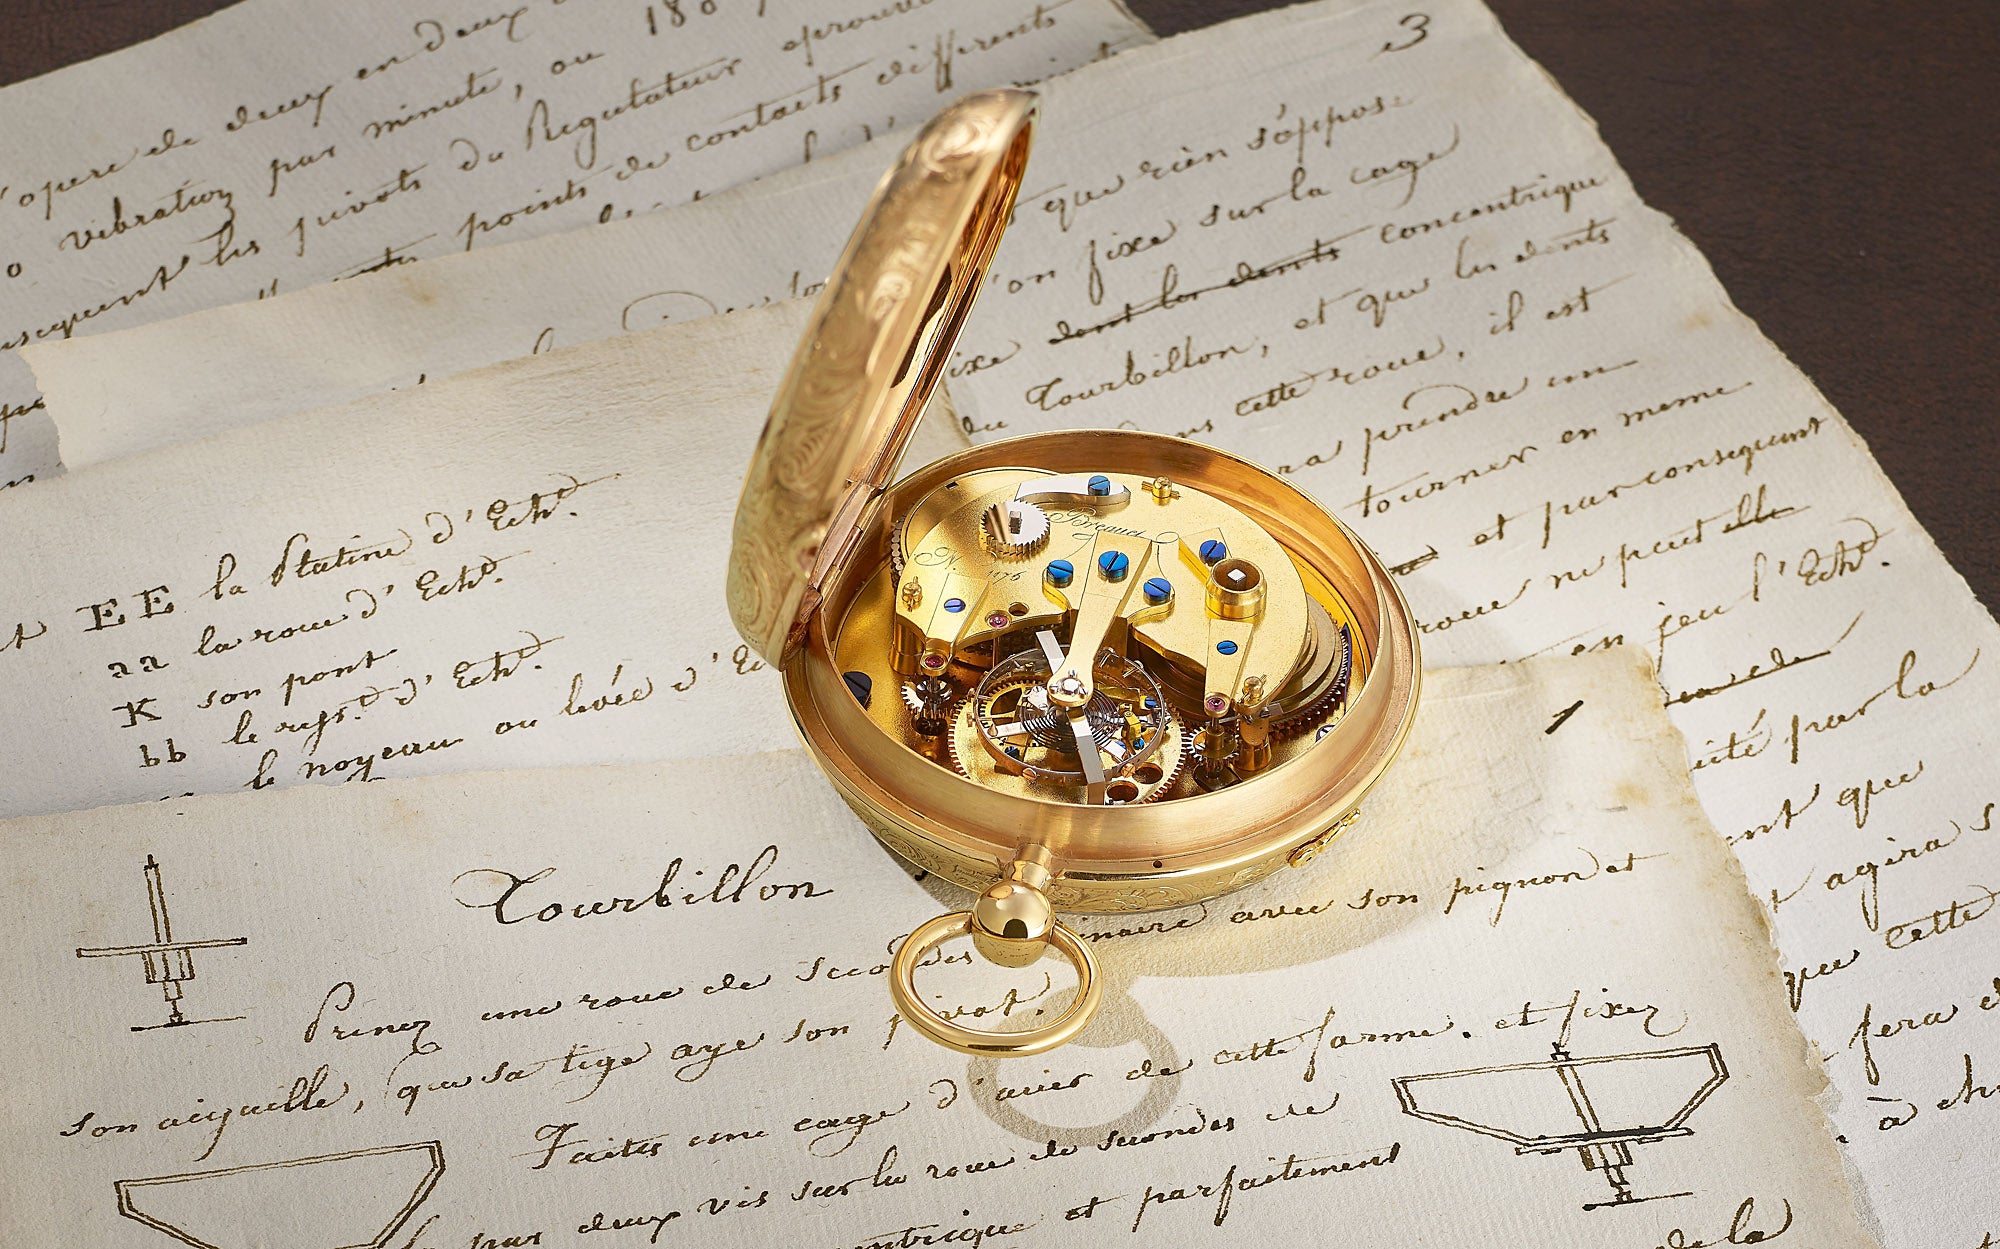 opere de deux en deux
vibration par minute, ou 180
les pivots du Regulateur eprouve
points de contacts differents
3
que rien s'oppos
on fixe sur la cage
ixe dont les dents concentrique
du Tourbillon, et que les dents
dans cette roue, il est
ra prendre un
tourner en meme
et par consequent
roue ne peut elle
en jeu l'Echt.
cité par la
ent que
agira s
que cette
fera
à ch
EE la Platine d'Echt.
aa la roue d'Echt.
K son pont
bb le d'Echt.
le noyeau ou levée d'Ec
Breguet
N. 1176
1
Tourbillon
Prenez une roue de secondes inaire avec son pignon et
son aiguille, que sa tige aye son pivot.
Faites une cage d'acier de cette forme. et fixez
par deux vis sur la roue de secondes de
entrique et parfaitement
de la